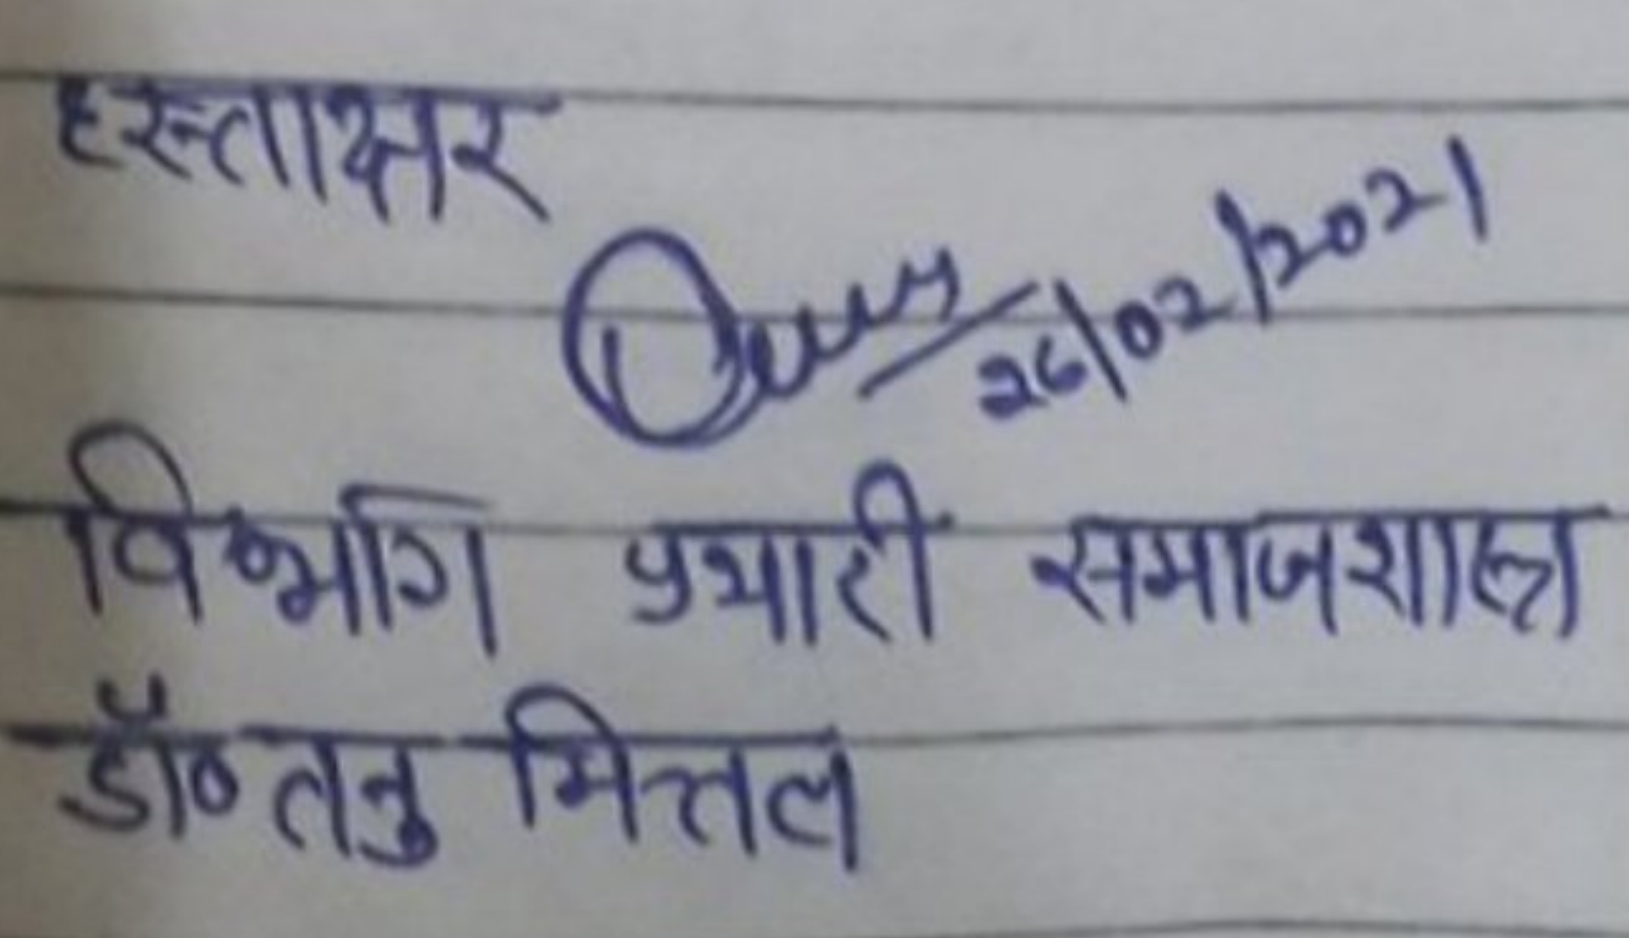 हस्ताक्षर
26/02/2021
विभाग प्रभारी समाजशास्त्र
डॉ० तनु मित्तल